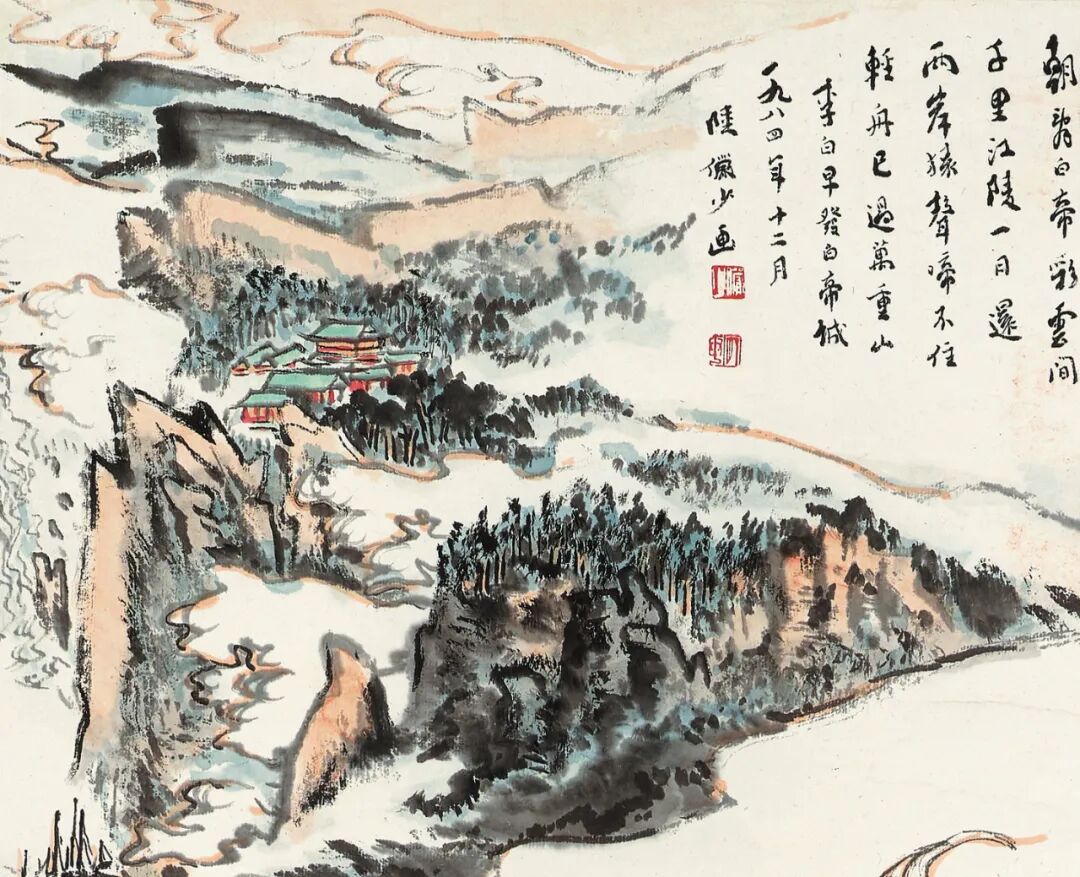 朝辭白帝彩雲間
千里江陵一日還
兩岸猿聲啼不住
輕舟已過萬重山
李白早發白帝城
一九八四年十二月
陸儼少画